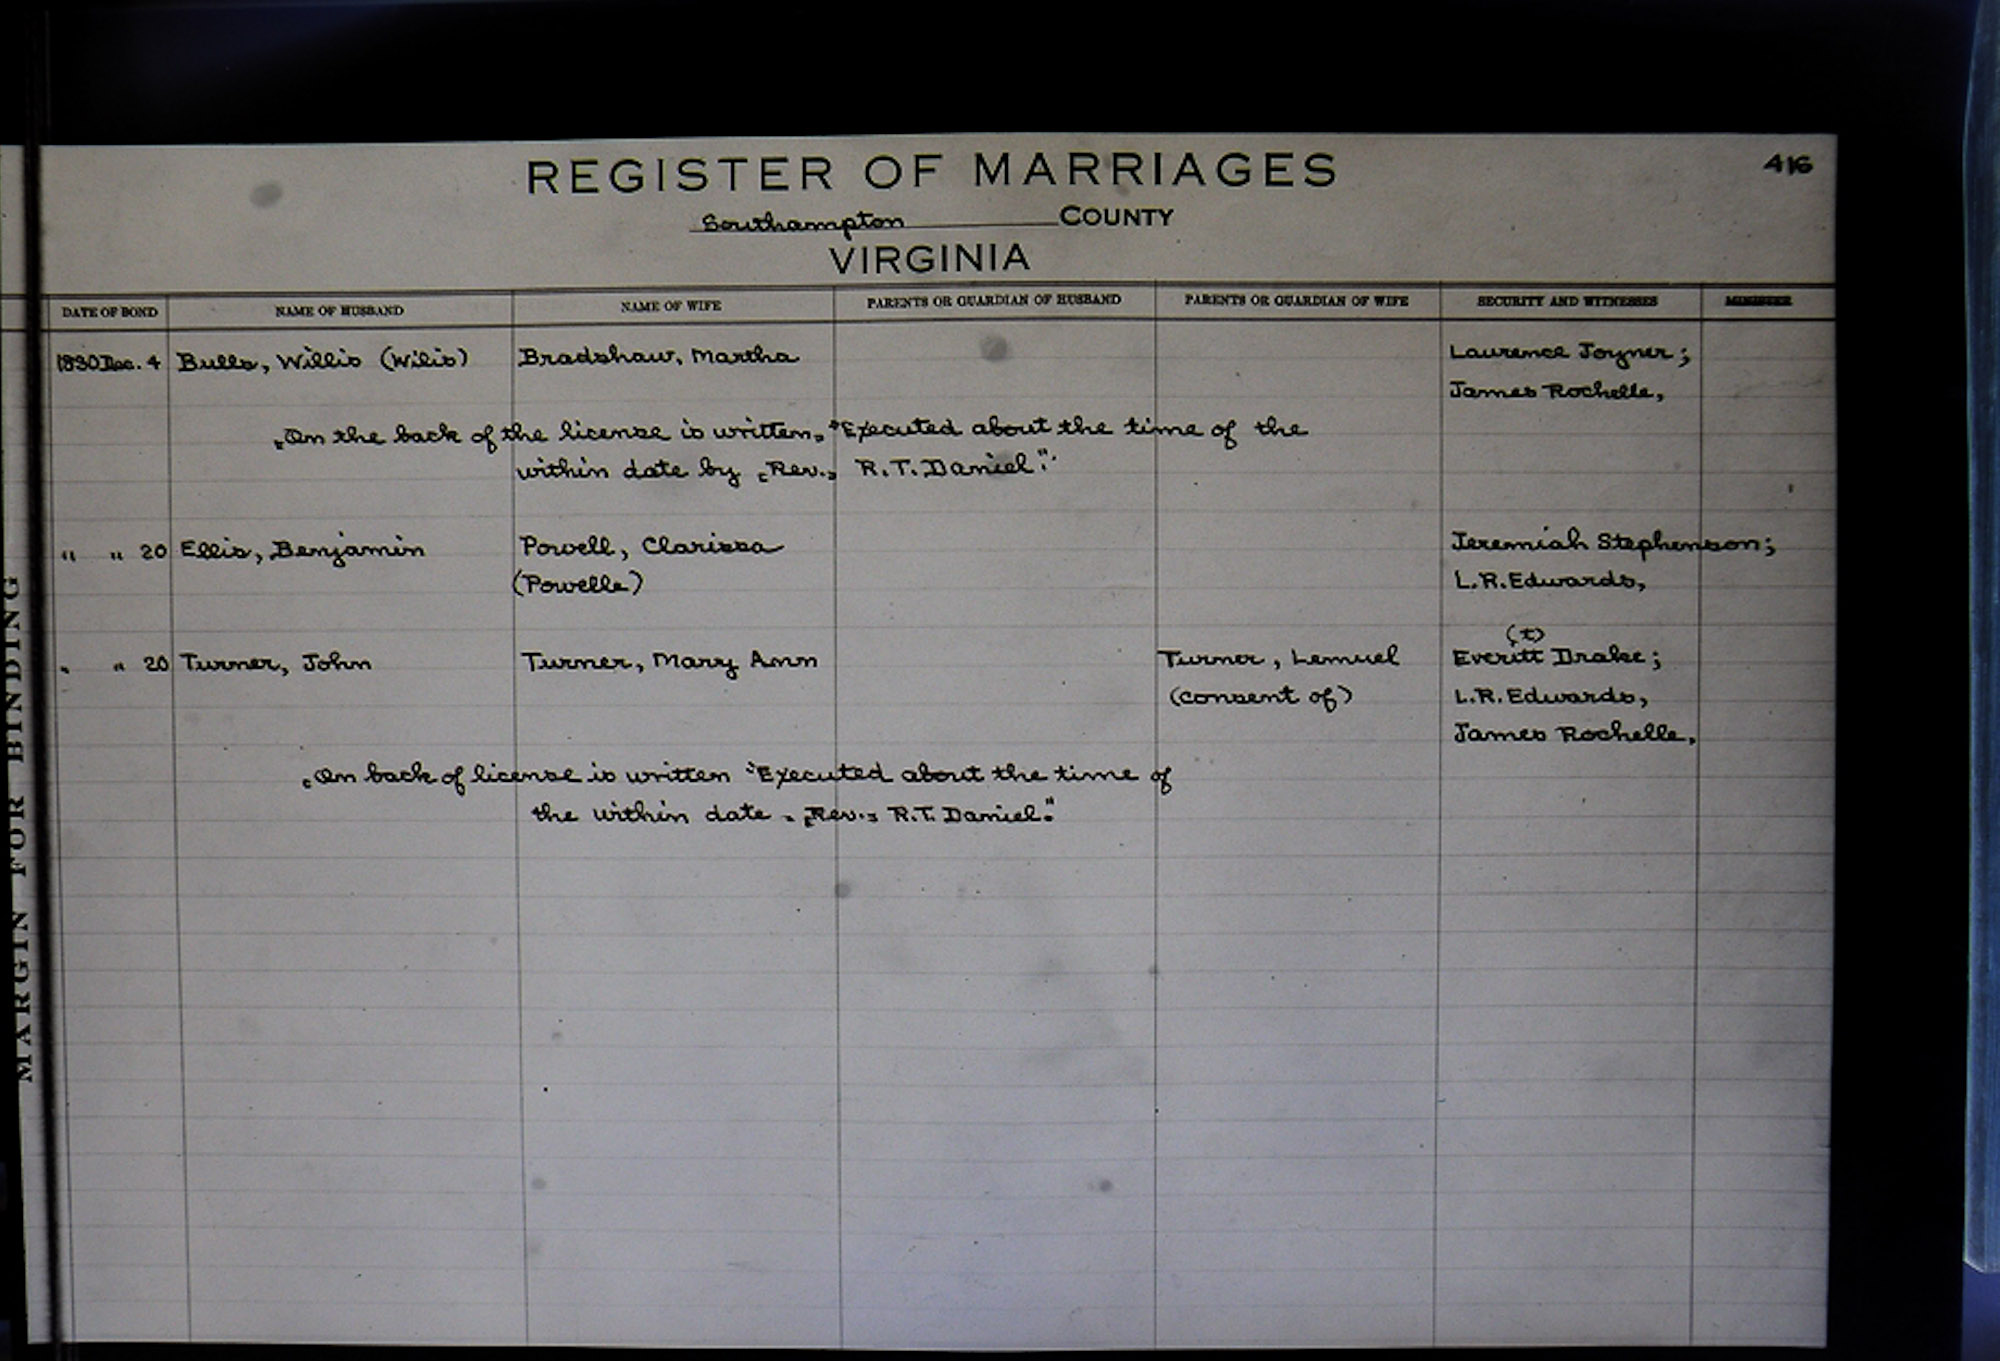 REGISTER OF MARRIAGES
416
Southampton COUNTY
VIRGINIA
DATE OF BOND NAME OF HUSBAND NAME OF WIFE PARENTS OR GUARDIAN OF HUSBAND PARENTS OR GUARDIAN OF WIFE SECURITY AND WITNESSES MINISTER
1830 Dec. 4 Bulls, Willis (Wilis) Bradshaw, Martha Laurence Joyner;
James Rochelle,
[On the back of the license is written] "Executed about the time of the
within date by [Rev.] R.T. Daniel".
" " 20 Ellis, Benjamin Powell, Clarissa Jeremiah Stephenson;
(Powells) L.R. Edwards,
(t)
" " 20 Turner, John Turner, Mary Ann Turner, Lemuel Everitt Drake;
(consent of) L.R. Edwards,
James Rochelle.
[On back of license is written "Executed about the time of
the within date. [Rev.] R.T. Daniel."
MARGIN FOR BINDING